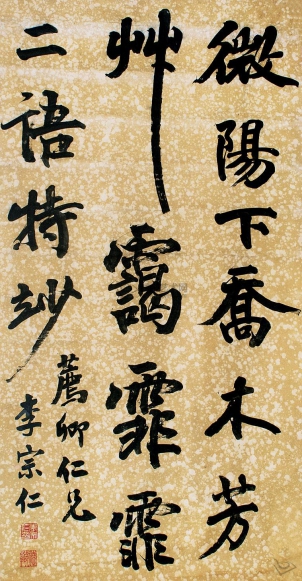 微陽下喬木芳
艸靄霏霏
二語特玅
薦卿仁兄
李宗仁